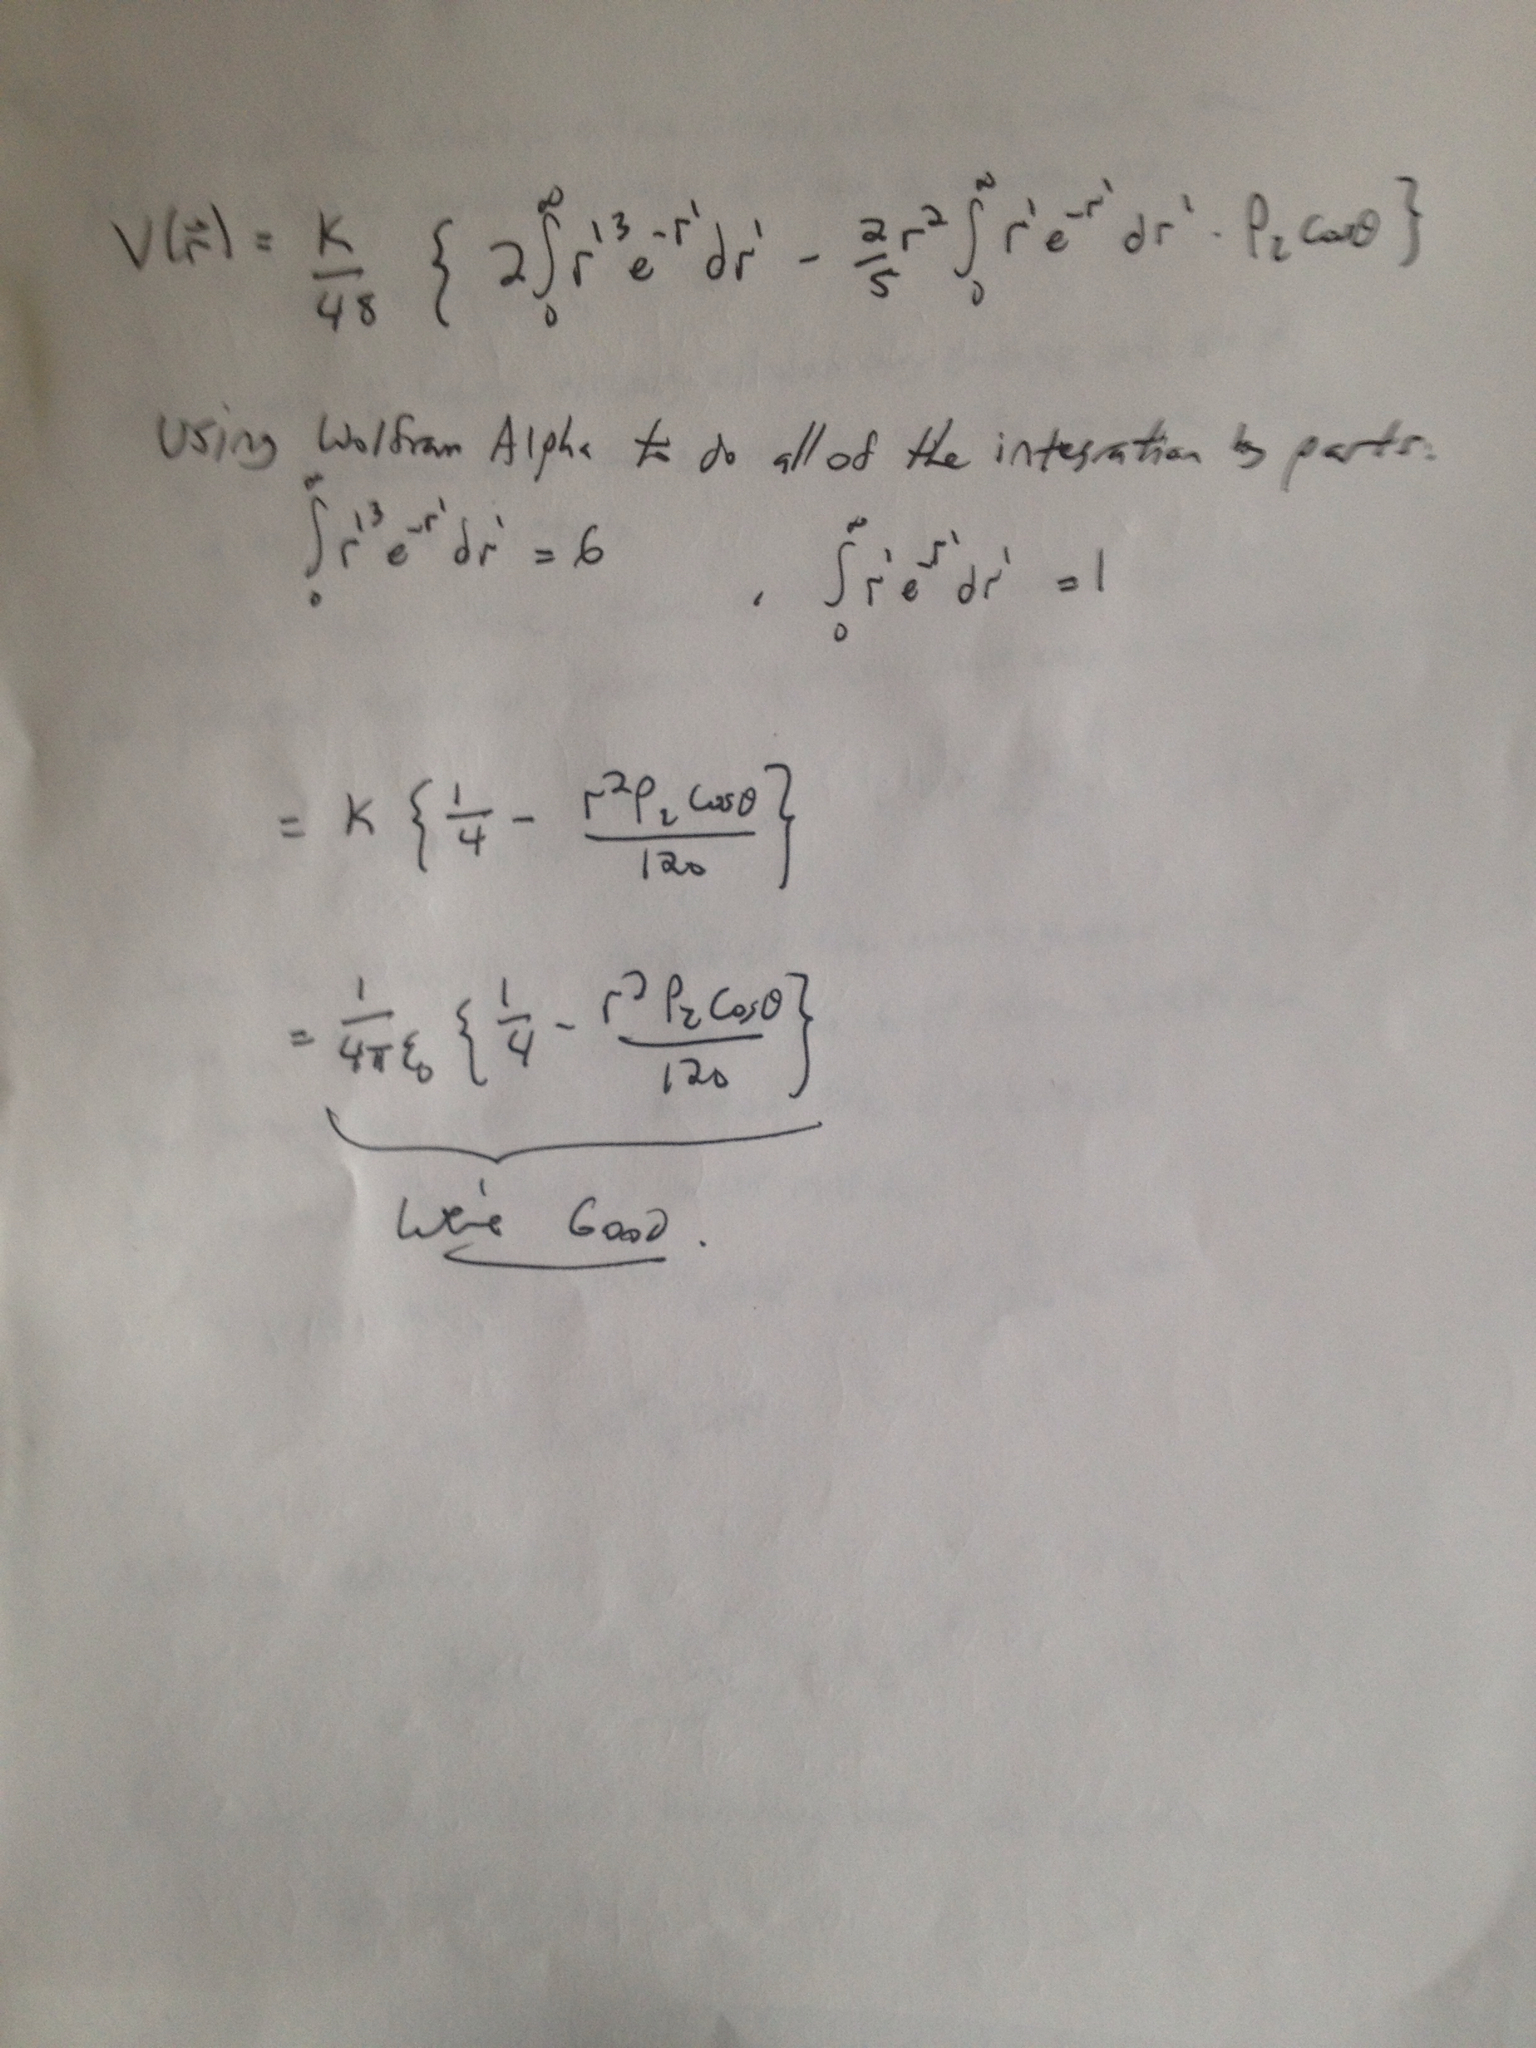 V(r⃗) = K/48 { 2 ∫₀^∞ r'³ e^-r' dr' - 2/5 r² ∫₀^∞ r' e^-r' dr' · P₂ cosθ }
Using Wolfram Alpha to do all of the integration by parts.
∫₀^∞ r'³ e^-r' dr' = 6 , ∫₀^∞ r' e^-r' dr' = 1
= K { 1/4 - r² P₂ cosθ/120 }
= 1/4πε₀ { 1/4 - r² P₂ cosθ/120 }
We're Good.